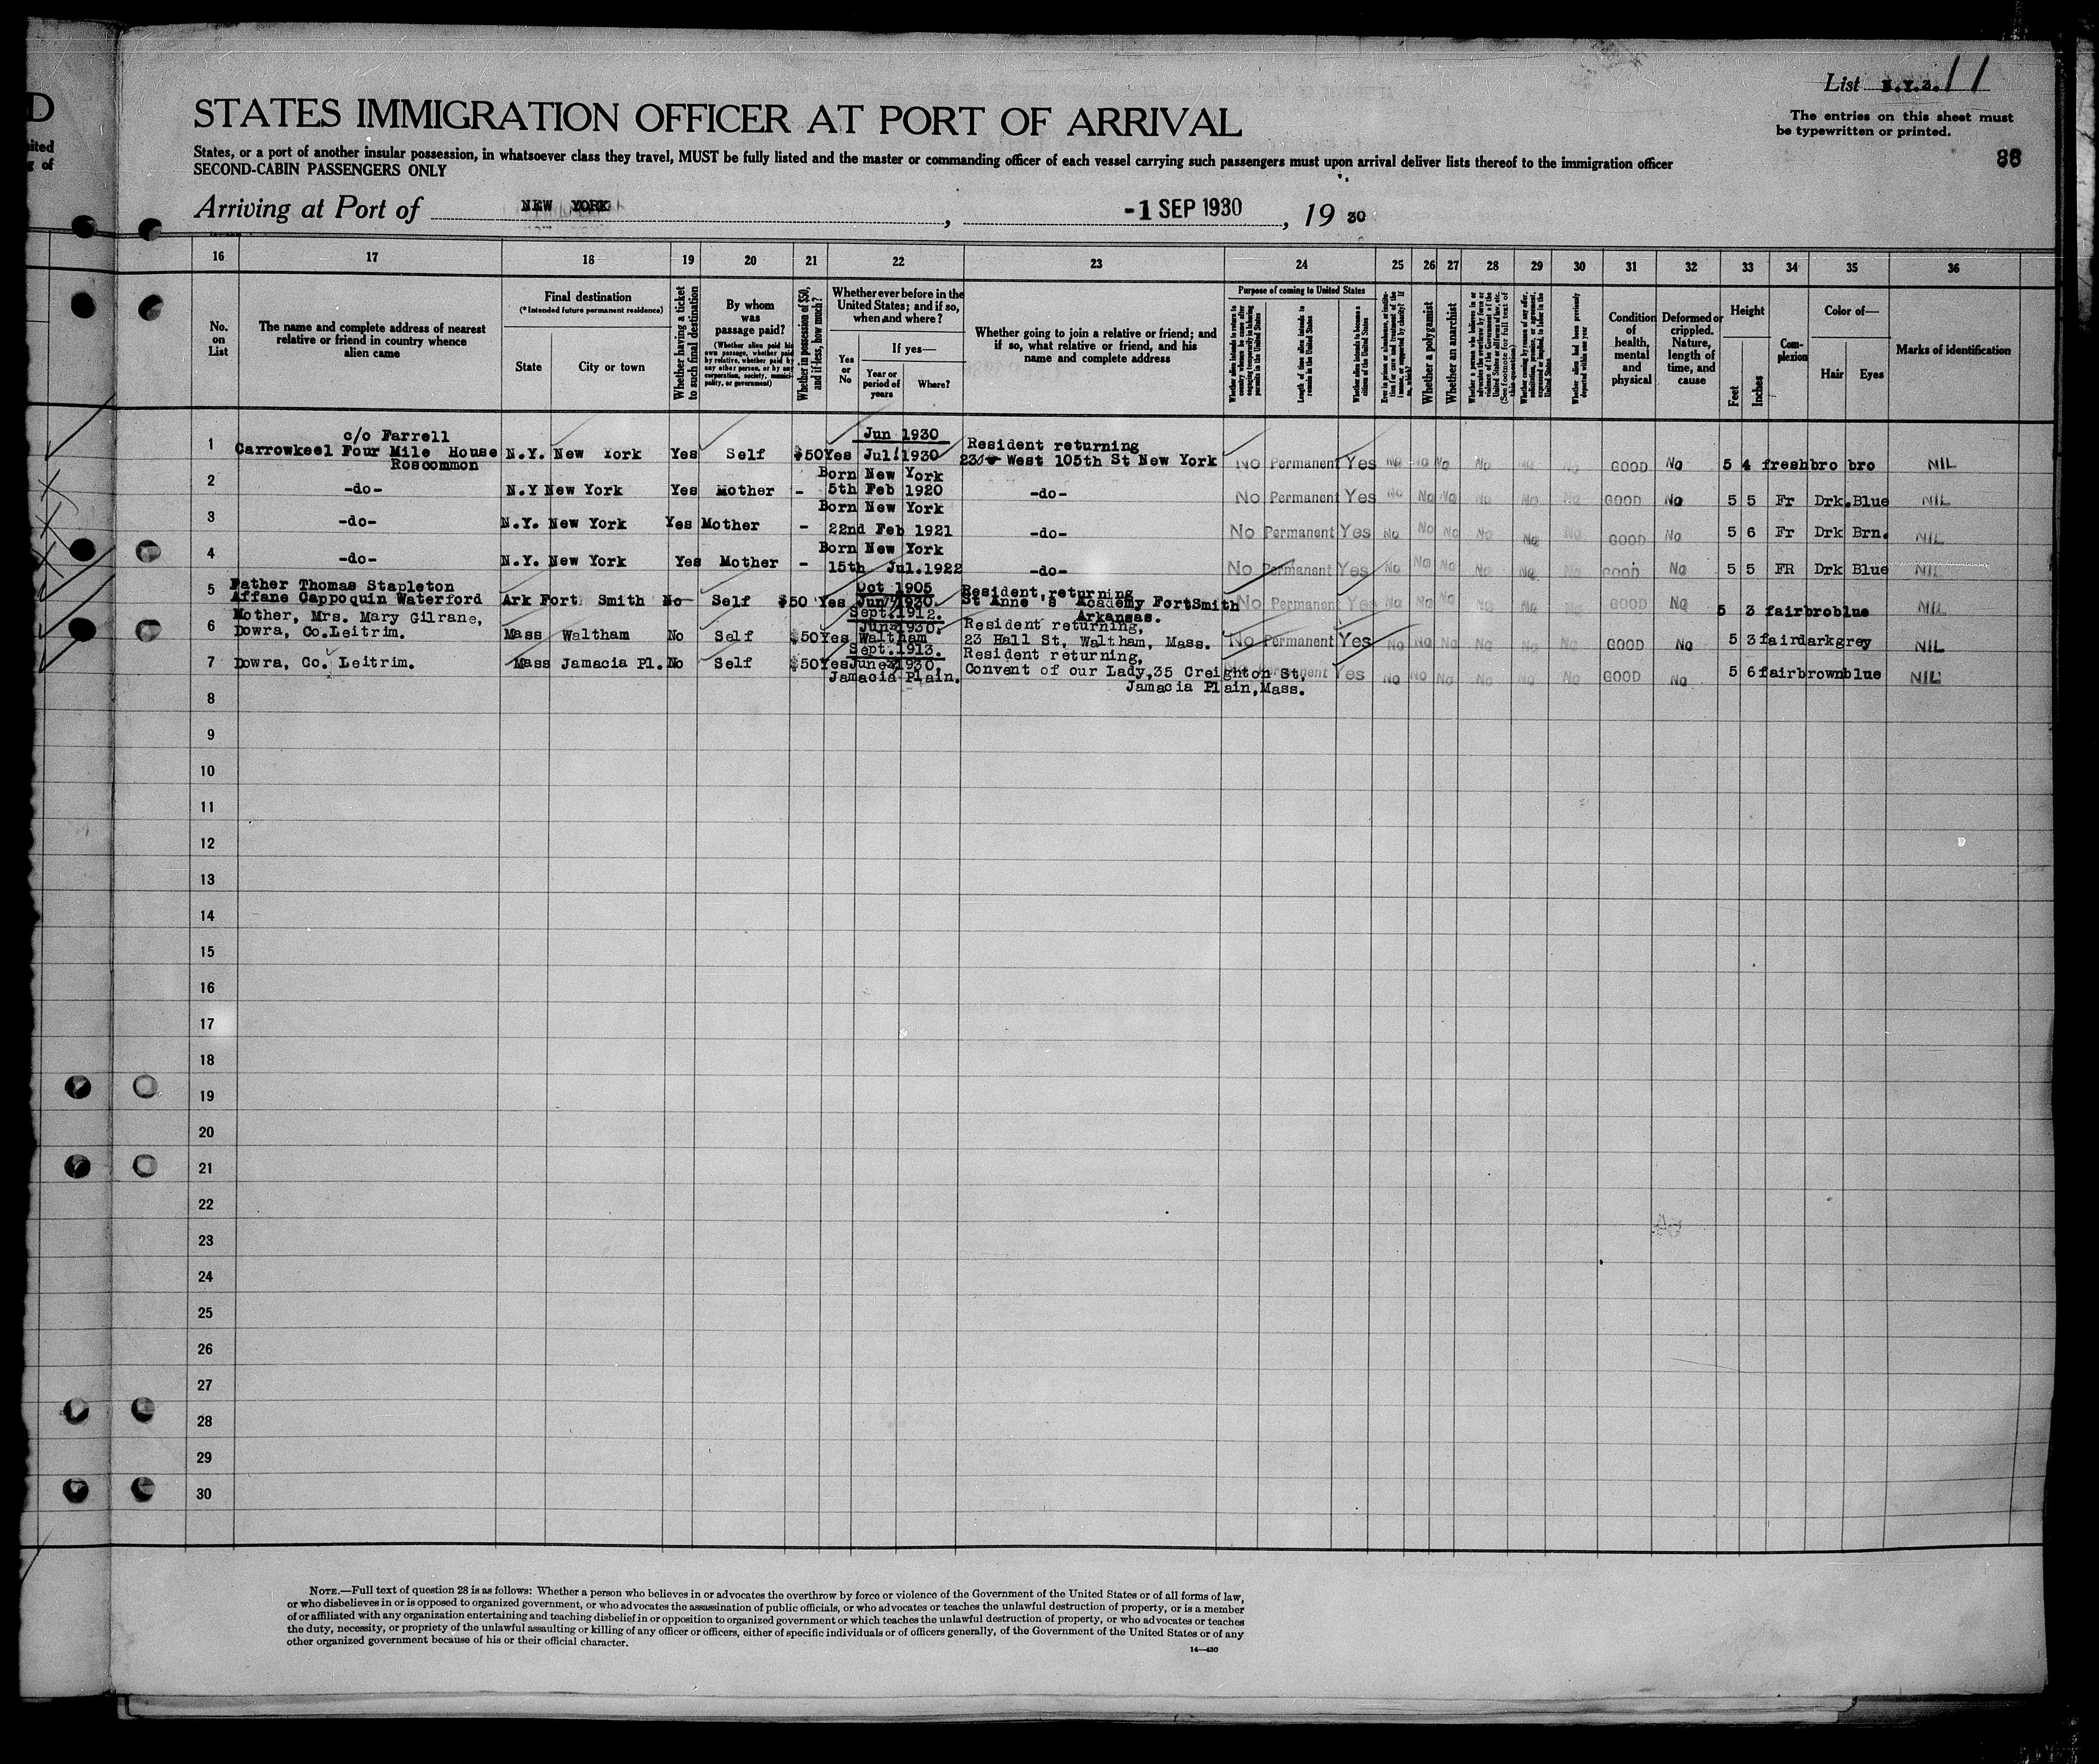 D
ited
g of
List N.Y.2. 11
STATES IMMIGRATION OFFICER AT PORT OF ARRIVAL
The entries on this sheet must
be typewritten or printed.
States, or a port of another insular possession, in whatsoever class they travel, MUST be fully listed and the master or commanding officer of each vessel carrying such passengers must upon arrival deliver lists thereof to the immigration officer
SECOND-CABIN PASSENGERS ONLY
88
Arriving at Port of NEW YORK, -1 SEP 1930, 19 30
16 17 18 19 20 21 22 23 24 25 26 27 28 29 30 31 32 33 34 35 36
No. on List
The name and complete address of nearest relative or friend in country whence alien came
Final destination
(*Intended future permanent residence)
State
City or town
Whether having a ticket to such final destination
By whom was passage paid?
(Whether alien paid his own passage, whether paid by relative, whether paid by any other person, or by any corporation, society, municipality, or government)
Whether in possession of $50, and if less, how much?
Whether ever before in the United States; and if so, when and where?
Yes or No
If yes—
Year or period of years
Where?
Whether going to join a relative or friend; and if so, what relative or friend, and his name and complete address
Purpose of coming to United States
Whether alien intends to return to country whence he came after engaging temporarily in laboring pursuits in the United States
Length of time alien intends to remain in the United States
Whether alien intends to become a citizen of the United States
Whether a polygamist
Whether an anarchist
(See footnote for full text of this question)
Whether alien had been previously deported within one year
Condition of health, mental and physical
Deformed or crippled. Nature, length of time, and cause
Height
Feet
Inches
Complexion
Color of—
Hair
Eyes
Marks of identification
1 c/o Farrell Carrowkeel Four Mile House Roscommon N.Y. New York Yes Self $50 Yes Jun 1930 Jul 1930 Resident returning West 105th St New York No Permanent Yes No No No No No No GOOD No 5 4 fresh bro bro NIL
2 -do- N.Y New York Yes Mother - Born New York 5th Feb 1920 -do- No Permanent Yes No No No No No No GOOD No 5 5 Fr Drk. Blue NIL
3 -do- N.Y. New York Yes Mother - Born New York 22nd Feb 1921 -do- No Permanent Yes No No No No No No GOOD No 5 6 Fr Drk Brn. NIL
4 -do- N.Y. New York Yes Mother - Born New York 15th Jul.1922 -do- No Permanent Yes No No No No No No GOOD No 5 5 FR Drk Blue NIL
5 Father Thomas Stapleton Affane Cappoquin Waterford Ark Fort Smith No Self $50 Yes Oct 1905 Jun 1930. Resident returning St Anne s Academy FortSmith Arkansas. No Permanent Yes No No No No No No GOOD No 5 3 fair bro blue NIL
6 Mother, Mrs. Mary Gilrane, Dowra, Co.Leitrim. Mass Waltham No Self $50 Yes Sept.1912. June 1930. Waltham Resident returning, 23 Hall St, Waltham, Mass. No Permanent Yes No No No No No No GOOD No 5 3 fair dark grey NIL
7 Dowra, Co. Leitrim. Mass Jamacia Pl. No Self $50 Yes Sept.1913. June 1930. Jamacia Plain. Resident returning, Convent of our Lady,35 Creighton St, Jamacia Plain,Mass. Permanent Yes No No No No No No GOOD No 5 6 fair brown blue NIL
8
9
10
11
12
13
14
15
16
17
18
19
20
21
22
23
24
25
26
27
28
29
30
NOTE.—Full text of question 28 is as follows: Whether a person who believes in or advocates the overthrow by force or violence of the Government of the United States or of all forms of law,
or who disbelieves in or is opposed to organized government, or who advocates the assassination of public officials, or who advocates or teaches the unlawful destruction of property, or is a member
of or affiliated with any organization entertaining and teaching disbelief in or opposition to organized government or which teaches the unlawful destruction of property, or who advocates or teaches
the duty, necessity, or propriety of the unlawful assaulting or killing of any officer or officers, either of specific individuals or of officers generally, of the Government of the United States or of any
other organized government because of his or their official character.
14—430